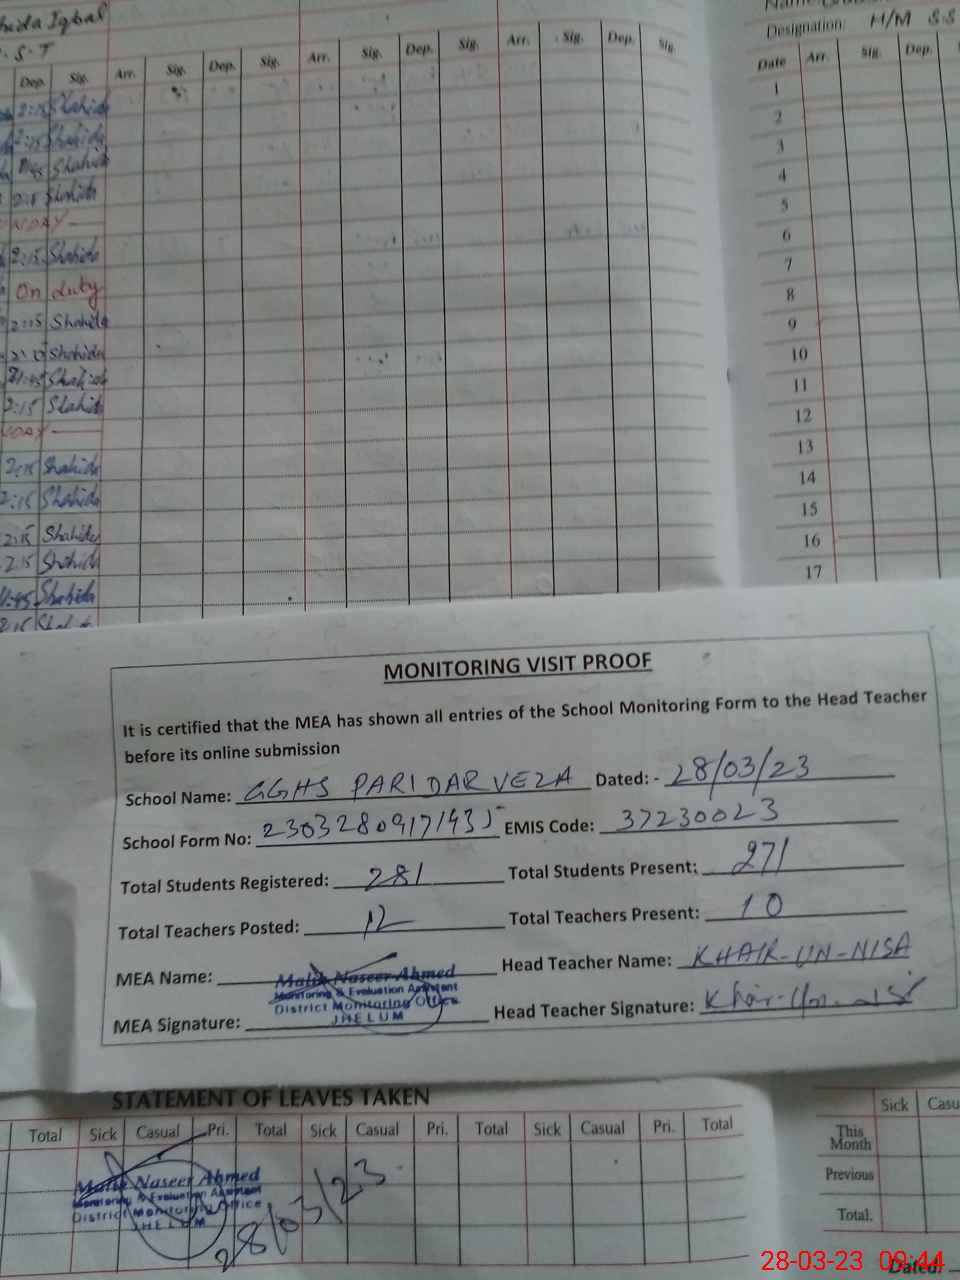 Shahida Iqbal
S.T
Dep. Sig. Arr. Sig. Dep. Sig. Arr. Sig. Dep. Sig. Arr. Sig. Dep. Sig.
2:15 Shahida
2:15 Shahida
Shahida
Shahida
2:15 Shahida
On duty
2:15 Shahida
Shahida
Shahida
2:15 Shahida
2:15 Shahida
2:15 Shahida
2:15 Shahida
2:15 Shahida
Shahida
Designation: H/M S.S
Date Arr. Sig. Dep.
1
2
3
4
5
6
7
8
9
10
11
12
13
14
15
16
17
MONITORING VISIT PROOF
It is certified that the MEA has shown all entries of the School Monitoring Form to the Head Teacher
before its online submission
School Name: GGHS PARI DARVEZA Dated: - 28/03/23
School Form No: EMIS Code: 37230023
Total Students Registered: 281 Total Students Present: 271
Total Teachers Posted: 12 Total Teachers Present: 10
MEA Name: Malik Naseer Ahmed Head Teacher Name: KHAIR-UN-NISA
Monitoring & Evaluation Assistant
District Monitoring Office
JHELUM
MEA Signature: Head Teacher Signature: Khair-Un-Nisa
STATEMENT OF LEAVES TAKEN
Total Sick Casual Pri. Total Sick Casual Pri. Total Sick Casual Pri. Total
Malik Naseer Ahmed
Monitoring & Evaluation Assistant
District Monitoring Office
JHELUM
28/03/23
Sick Casu
This
Month
Previous
Total.
Dated:
28-03-23 09:44